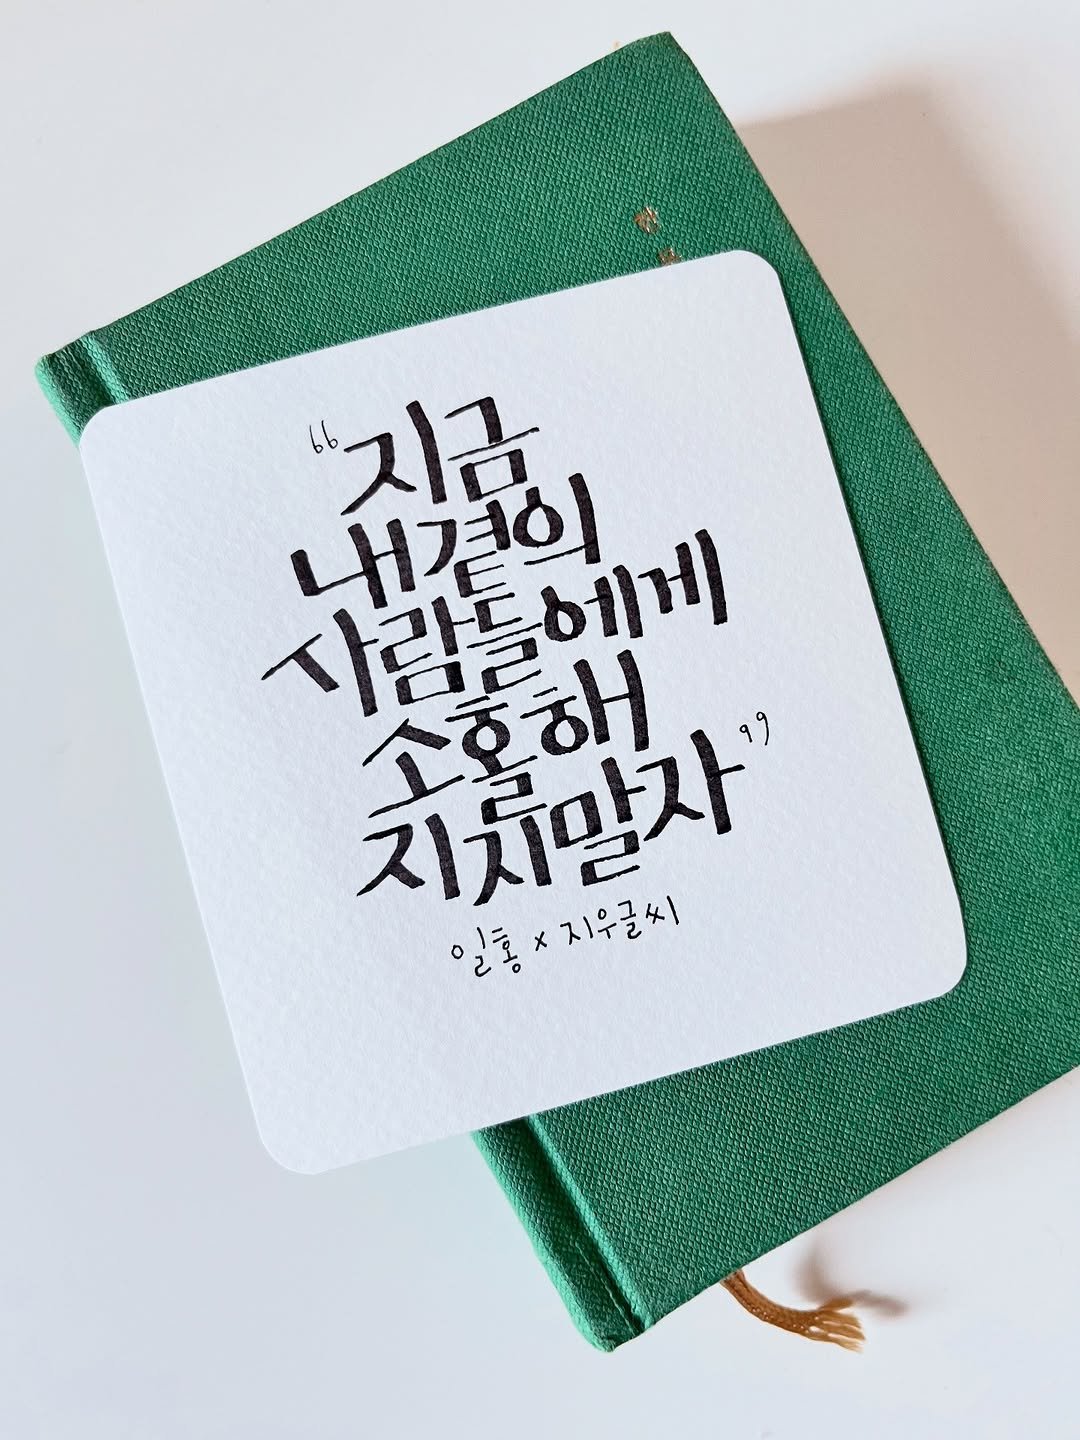 “지금
내곁의
사람들에게
소홀해
지지말자”
일홍 x 지우글씨